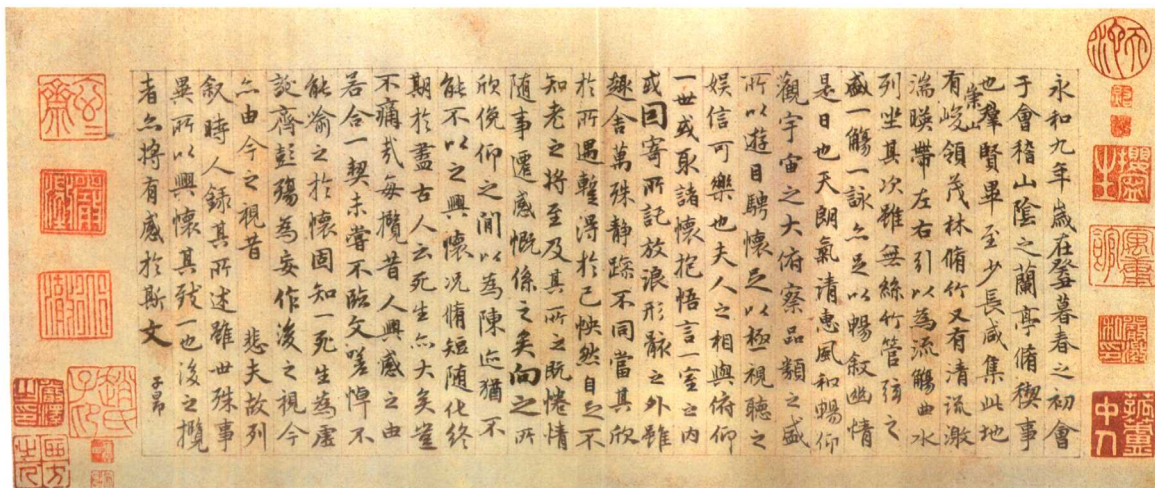 永和九年歲在癸丑暮春之初會
于會稽山陰之蘭亭脩稧事
也羣賢畢至少長咸集此地
崇山
有峻領茂林脩竹又有清流激
湍暎帶左右引以為流觴曲水
列坐其次雖無絲竹管弦之
盛一觴一詠亦足以暢敘幽情
是日也天朗氣清惠風和暢仰
觀宇宙之大俯察品類之盛
所以遊目騁懷足以極視聽之
娛信可樂也夫人之相與俯仰
一世或取諸懷抱悟言一室之內
或因寄所託放浪形骸之外雖
趣舍萬殊静躁不同當其欣
於所遇蹔得於己怏然自足不
知老之將至及其所之既惓情
随事遷感慨係之矣向之所
欣俛仰之閒以為陳迹猶不
能不以之興懷况脩短随化終
期於盡古人云死生亦大矣豈
不痛哉每攬昔人興感之由
若合一契未嘗不臨文嗟悼不
能喻之於懷固知一死生為虛
誕齊彭殤為妄作後之視今
亦由今之視昔 悲夫故列
叙時人録其所述雖世殊事
異所以興懷其致一也後之攬
者亦將有感於斯文
子昂
趙氏子昂